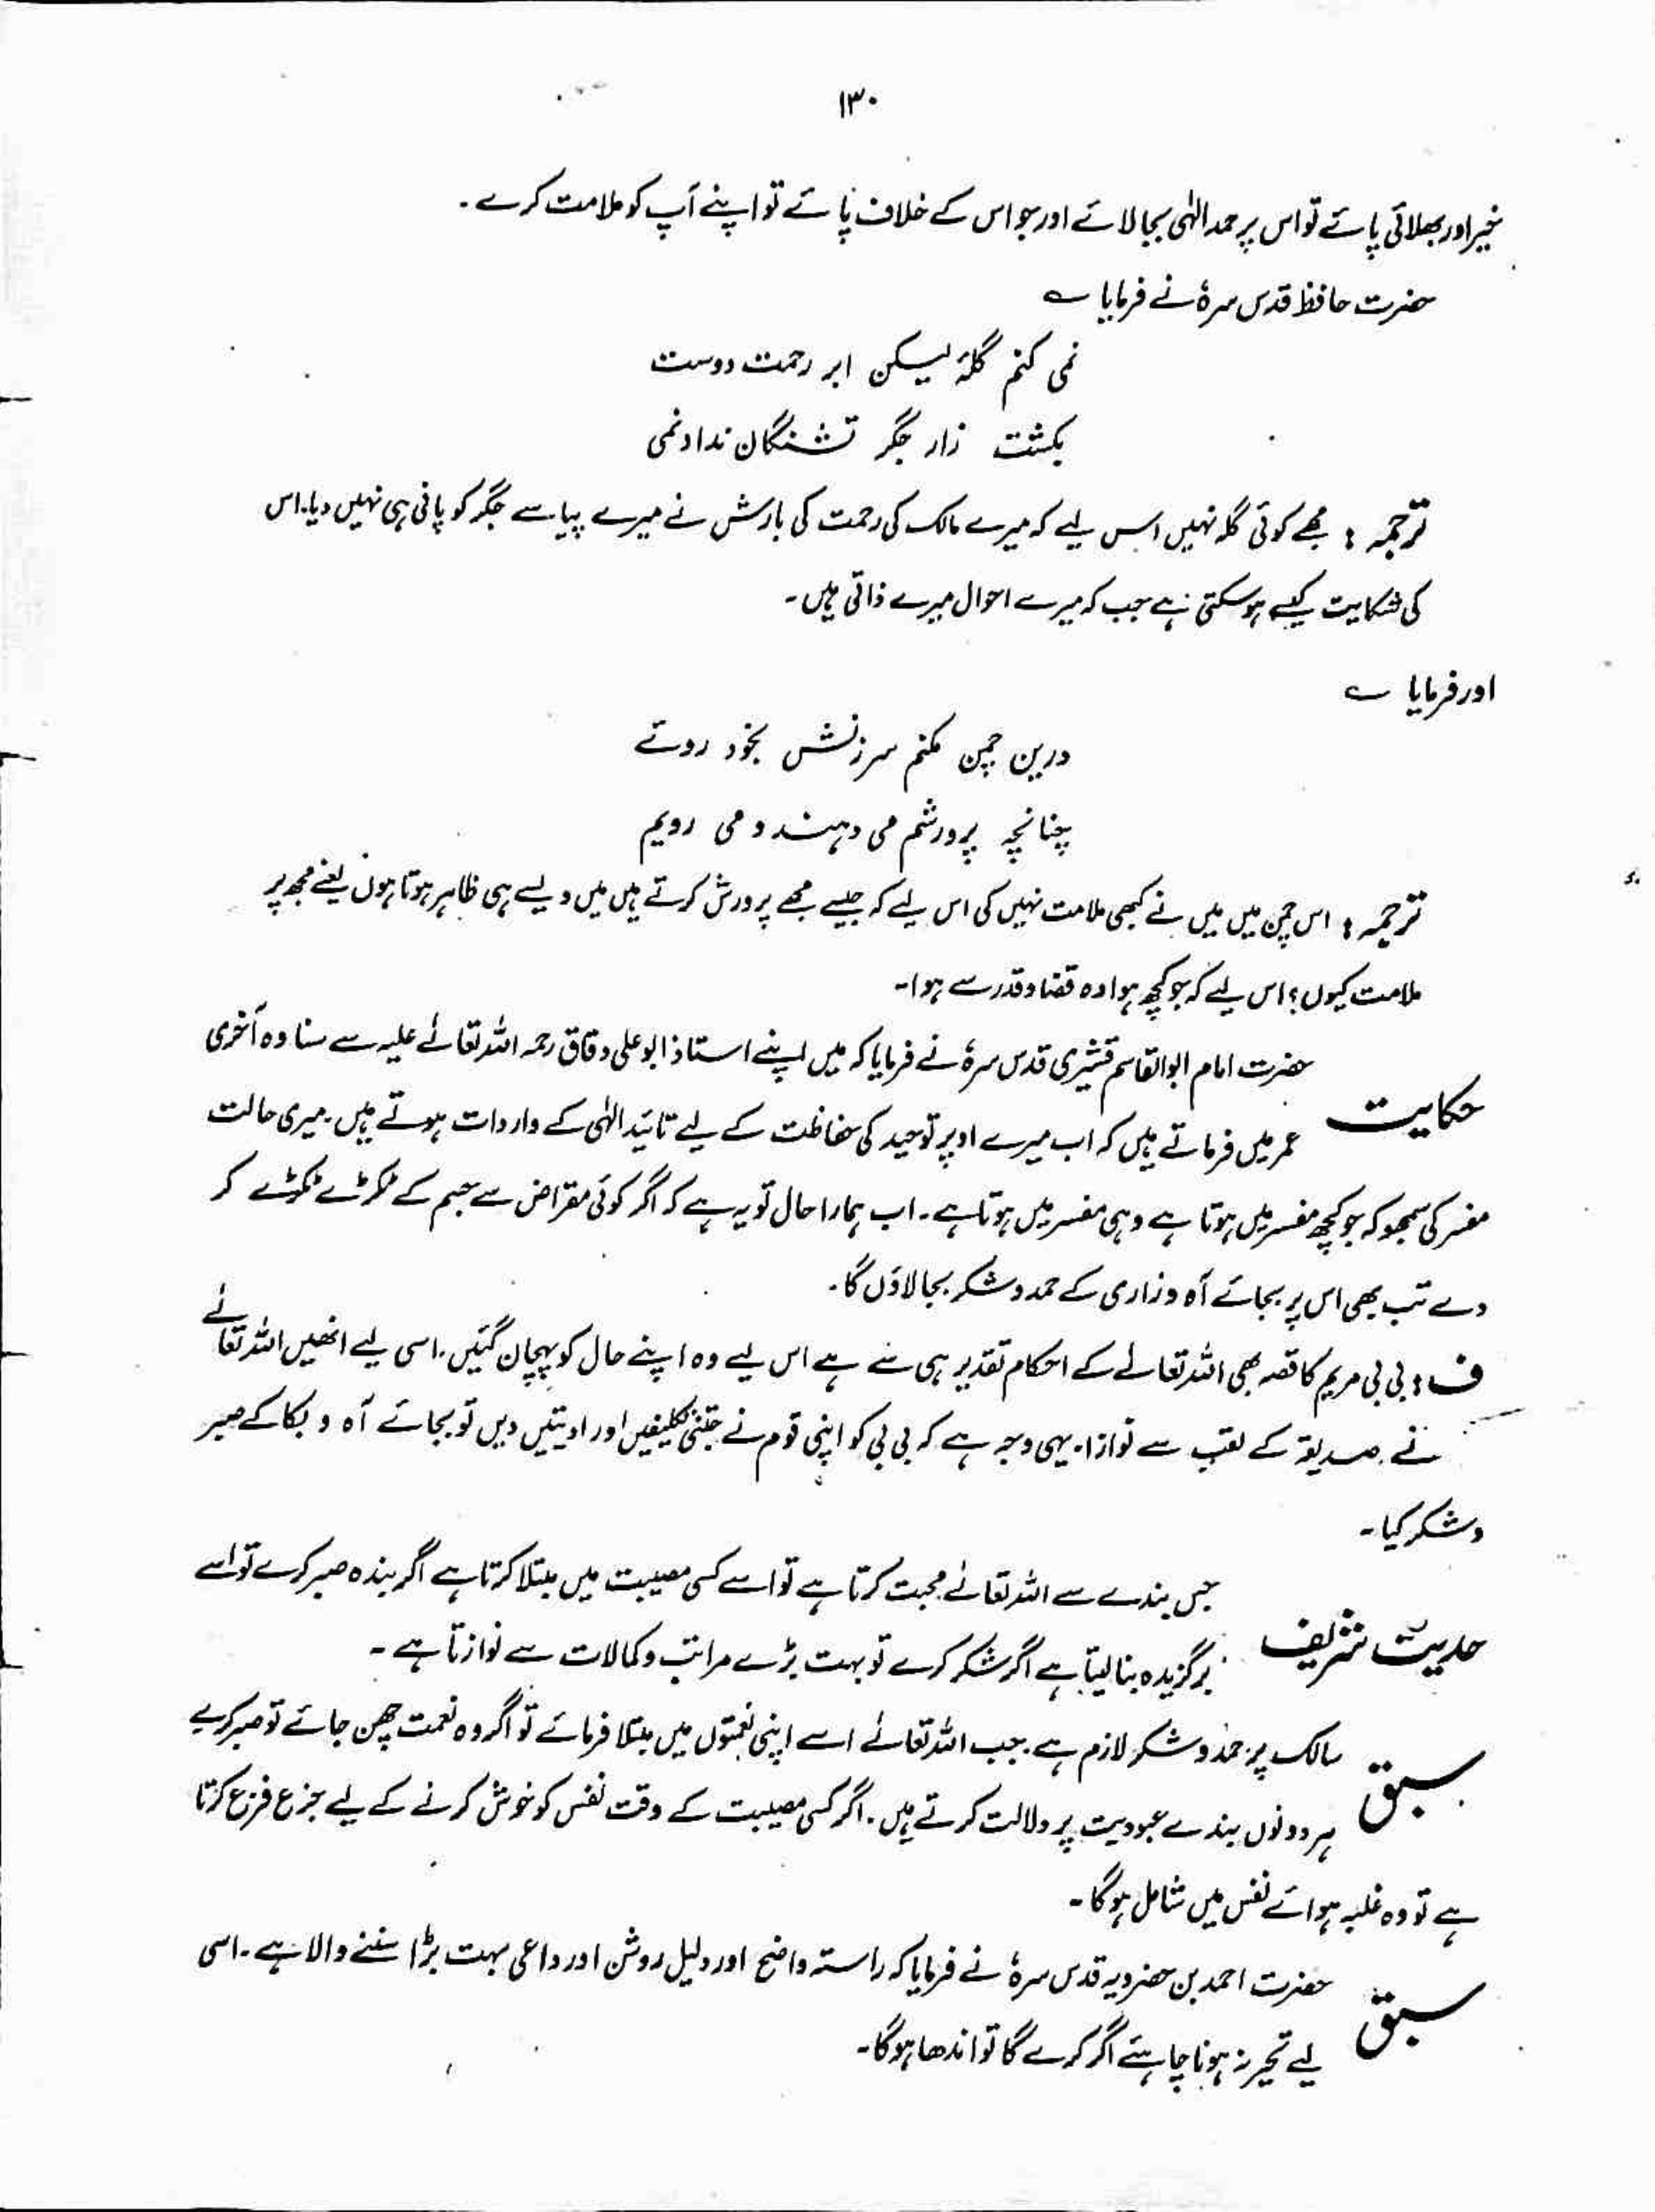 ۱۳۰
خیر اور بھلائی پائے تو اس پر حمد الٰہی بجا لائے اور جو اس کے خلاف پائے تو اپنے آپ کو ملامت کرے۔
حضرت حافظ قدس سرہٗ نے فرمایا ؎
نمی کنم گلۂ لیسکن ابر رحمت دوست
بکشت زار جگر تشنگان نداد نمی
ترجمہ : مجھے کوئی گلہ نہیں اس لیے کہ میرے مالک کی رحمت کی بارش نے میرے پیاسے جگر کو پانی ہی نہیں دیا۔ اس
کی شکایت کیسے ہو سکتی ہے جب کہ میرے احوال میرے ذاتی ہیں۔
اور فرمایا ؎
درین چمن مکنم سرزنش بخود روئے
چنانچہ پرورشم می دہند و می رویم
ترجمہ : اس چمن میں میں نے کبھی ملامت نہیں کی اس لیے کہ جیسے مجھے پرورش کرتے ہیں میں ویسے ہی ظاہر ہوتا ہوں یعنے مجھ پر
ملامت کیوں؟ اس لیے کہ جو کچھ ہوا وہ قضا و قدر سے ہوا۔
حکایت حضرت امام ابوالقاسم قشیری قدس سرہٗ نے فرمایا کہ میں اپنے استاذ ابو علی دقاق رحمہ اللہ تعالےٰ علیہ سے سنا وہ آخری
عمر میں فرماتے ہیں کہ اب میرے اوپر توحید کی حفاظت کے لیے تائید الٰہی کے واردات ہوتے ہیں۔ میری حالت
مفسر کی سمجھو کہ جو کچھ مفسر میں ہوتا ہے وہی مفسر میں ہوتا ہے۔ اب ہمارا حال تو یہ ہے کہ اگر کوئی مقراض سے جسم کے ٹکڑے ٹکڑے کر
دے تب بھی اس پر بجائے آہ و زاری کے حمد و شکر بجا لاؤں گا۔
ف : بی بی مریم کا قصہ بھی اللہ تعالےٰ کے احکام تقدیر ہی سے ہے اس لیے وہ اپنے حال کو پہچان گئیں۔ اسی لیے انھیں اللہ تعالےٰ
نے صدیقۃ کے لقب سے نوازا۔ یہی وجہ ہے کہ بی بی کو اپنی قوم نے جتنی تکلیفیں اور اذیتیں دیں تو بجائے آہ و بکا کے صبر
و شکر کیا۔
حدیث شریف جس بندے سے اللہ تعالےٰ محبت کرتا ہے تو اسے کسی مصیبت میں مبتلا کرتا ہے اگر بندہ صبر کرے تو اسے
برگزیدہ بنا لیتا ہے اگر شکر کرے تو بہت بڑے مراتب و کمالات سے نوازتا ہے۔
سبق سالک پر حمد و شکر لازم ہے۔ جب اللہ تعالےٰ اسے اپنی نعمتوں میں مبتلا فرمائے تو اگر وہ نعمت چھن جائے تو صبر کرے
ہر دونوں بندے عبودیت پر دلالت کرتے ہیں۔ اگر کسی مصیبت کے وقت نفس کو خوش کرنے کے لیے جزع فزع کرتا
ہے تو وہ غلبہ ہوائے نفس میں شامل ہوگا۔
سبق حضرت احمد بن حضرویہ قدس سرہٗ نے فرمایا کہ راستہ واضح اور دلیل روشن اور داعی بہت بڑا سننے والا ہے۔ اسی
لیے تحیر نہ ہونا چاہئے اگر کرے گا تو اندھا ہوگا۔